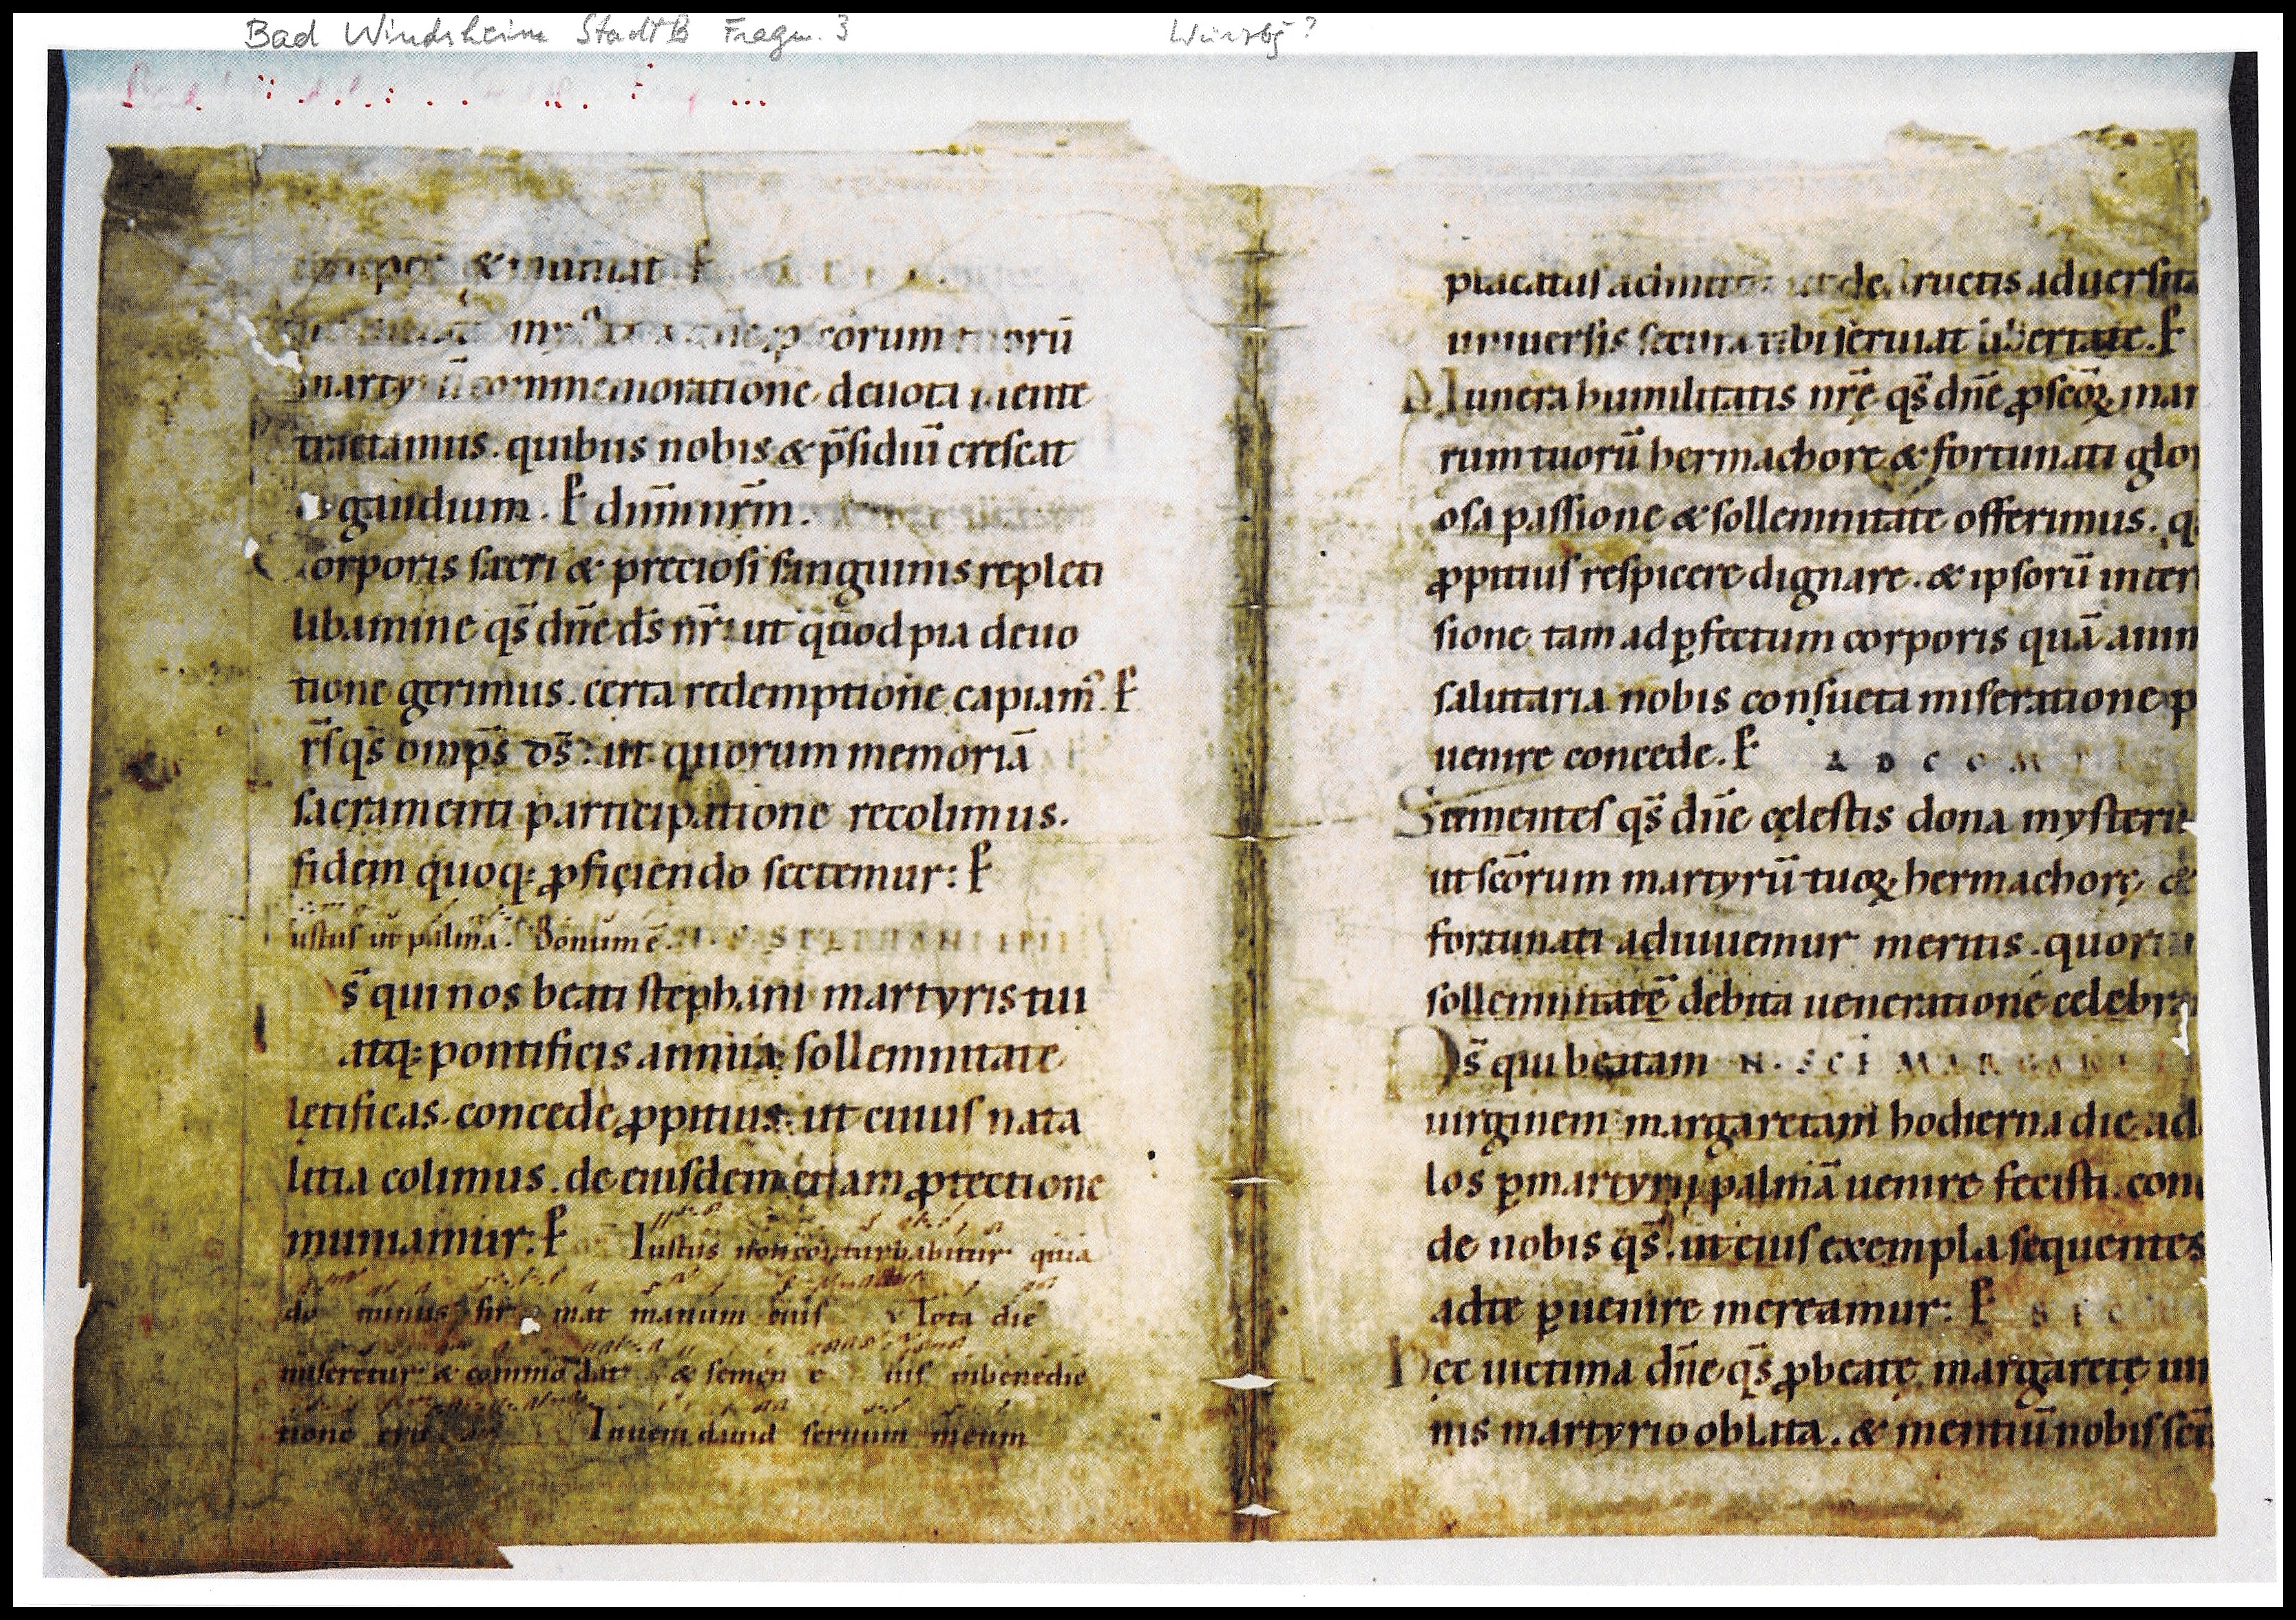 Bad Windsheim StadtB Fragm. 3
Würzbg?
& muniat ꝑ
corum tuorū
commemoratione deuota mente
tractamus. quibus nobis & p̄sidiū crescat
gaudium. ꝑ dnm̄ nrm̄.
Corporis sacri & preciosi sanguinis repleti
libamine qs̄ dn̄e ds̄ nr̄: ut quod pia deuo
tione gerimus. certa redemptione capiam᷒. ꝑ
qs̄ omp̄s ds̄: ut quorum memoriā
sacramenti participatione recolimus.
fidem quoq; ꝓficiendo sectemur: ꝑ
iustus ut palma. Bonum ē. N. S. STEPHANI
s̄ qui nos beati stephani martyris tui
atq; pontificis annua sollemnitate
lętificas. concede ꝓpitius: ut cuius nata
litia colimus. de eiusdem etiam ꝓtectione
muniamur: ꝑ Iustus non conturbabitur quia
do minus fir mat manum eius Tota die
miseretur & commodat & semen e ius inbenedic
tione Inueni dauid seruum meum
placatus ut destructis aduersita
uniuersis secura tibi seruiat libertate. ꝑ
Munera humilitatis nr̄ę qs̄ dn̄e ꝓ scōꝝ mar
rum tuorū hermachore & fortunati glo
osa passione & sollemnitate offerimus. q
ꝓpitius respicere dignare. & ipsorū inter
sione tam ad ꝑfectum corporis quā anim
salutaria nobis consueta miseratione p
uenire concede. ꝑ AD COM
Sumentes qs̄ dn̄e cęlestis dona mysterii
ut scōrum martyrū tuoꝝ hermachorę &
fortunati adiuuemur meritis. quorum
sollemnitatē debita ueneratione celebra
Ds̄ qui beatam N. SCE MARGARE
uirginem margaretam hodierna die ad
los ꝑ martyrii palmā uenire fecisti. con
de nobis qs̄. ut eius exempla sequentes
ad te ꝑuenire mereamur: ꝑ SEC
Hęc uictima dn̄e qs̄ ꝓ beatę margaretę uir
nis martyrio oblata. & mentiū nobis